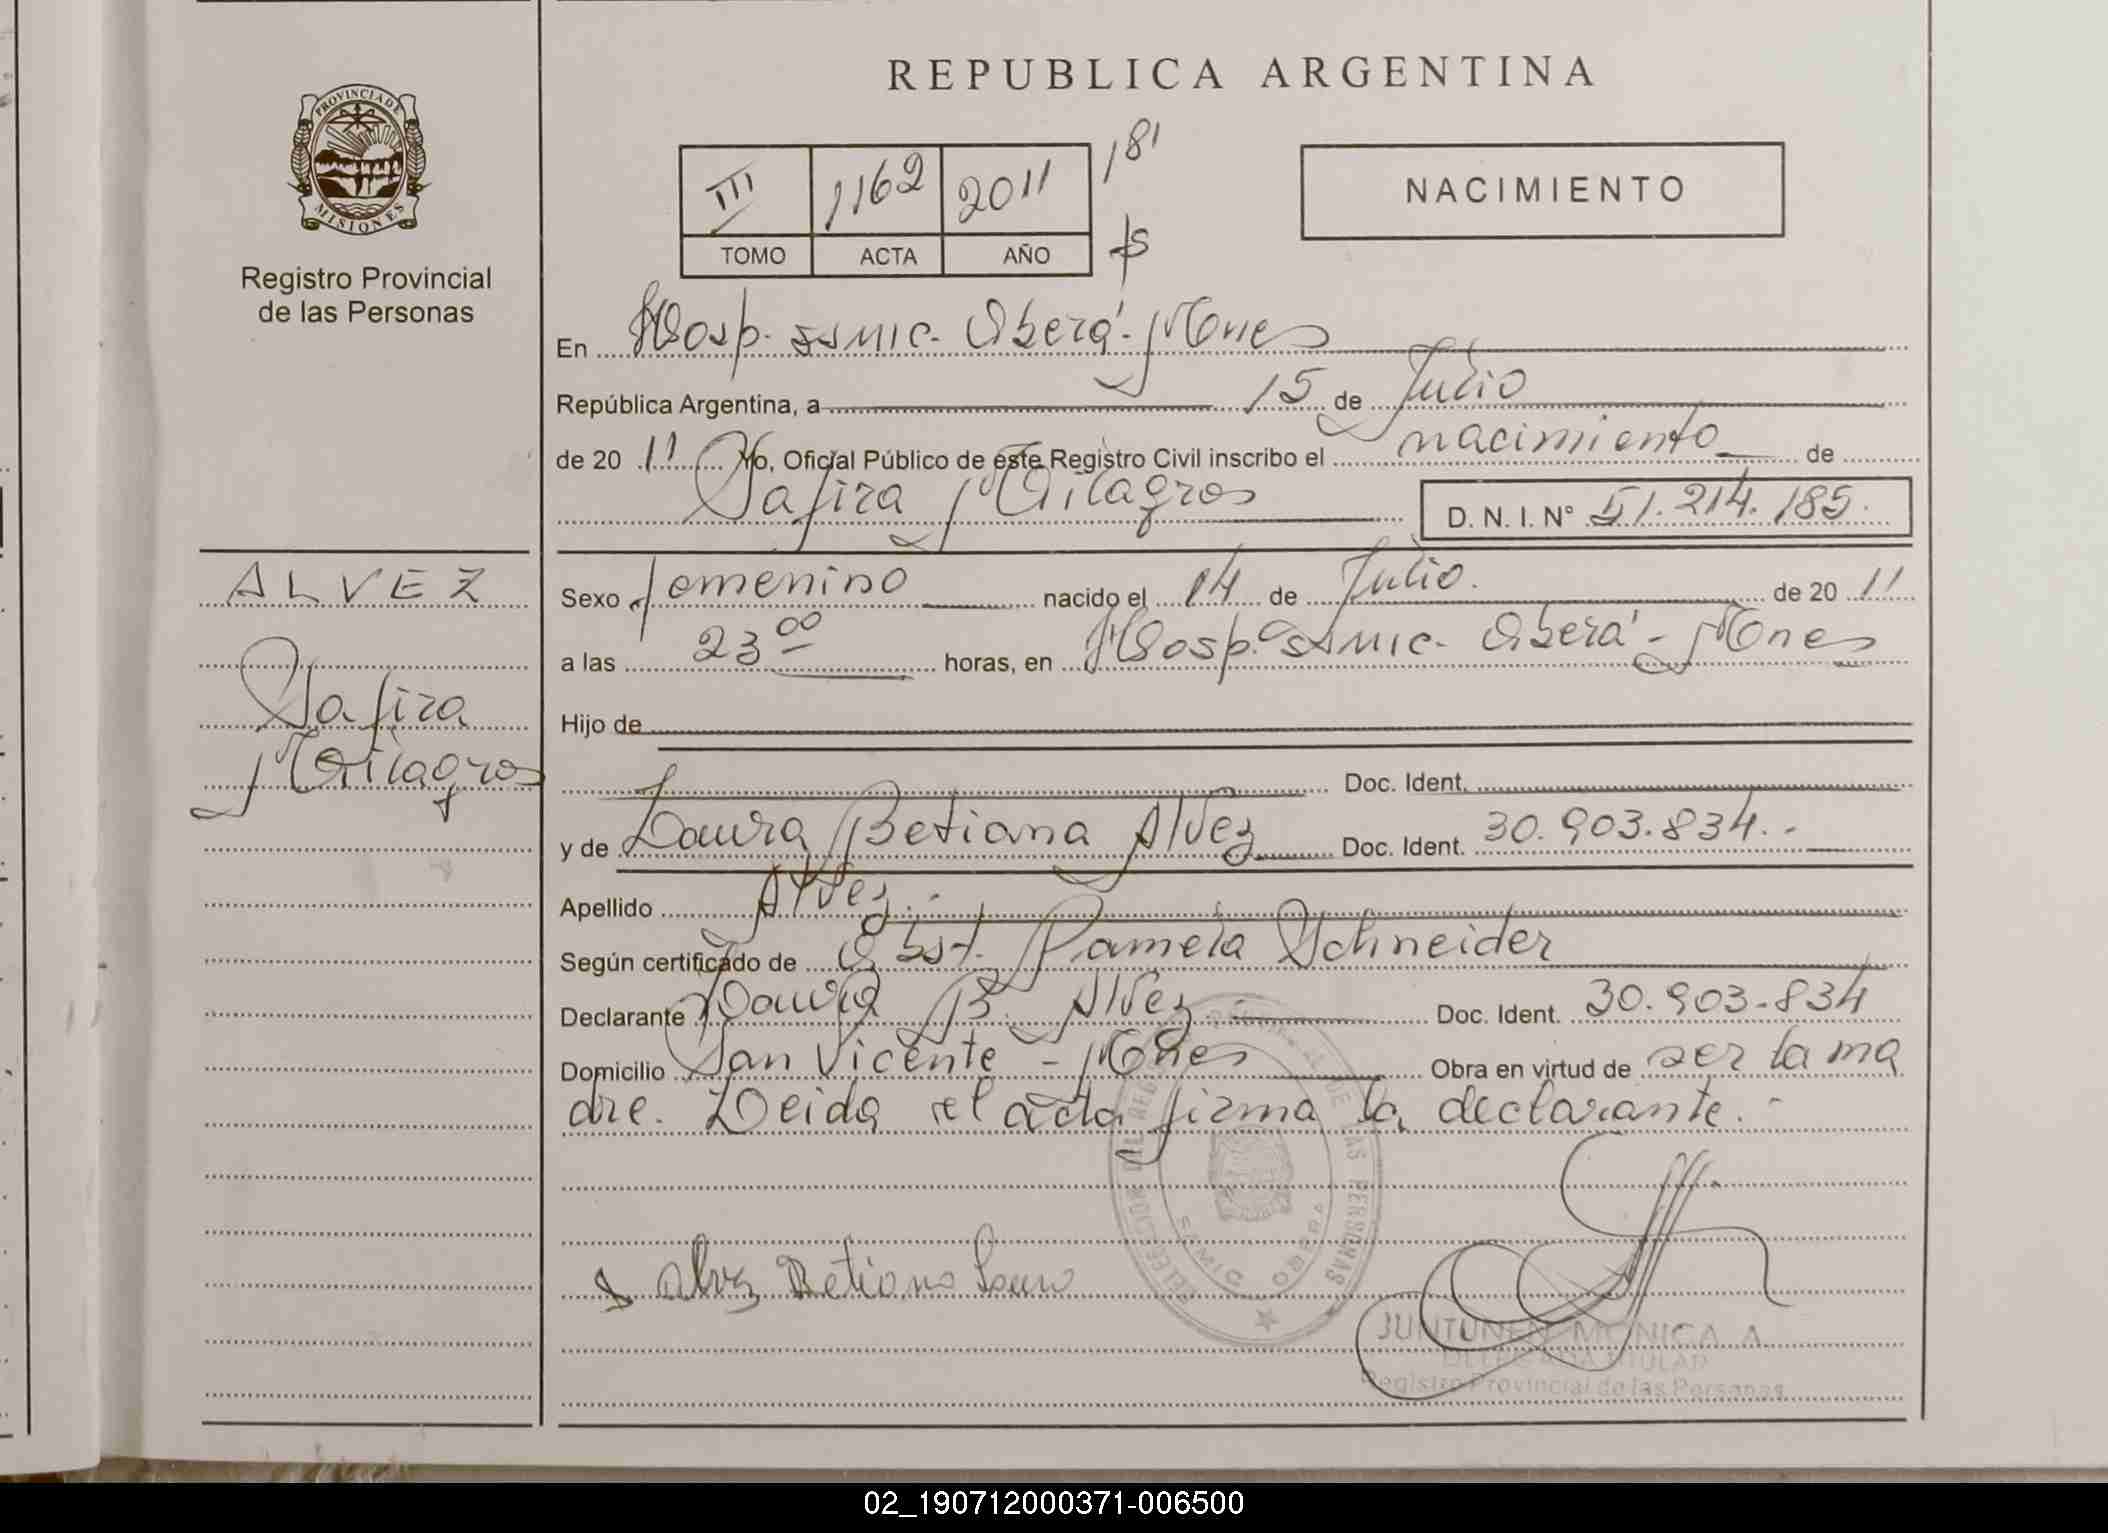 REPUBLICA ARGENTINA
PROVINCIA DE
MISIONES
Registro Provincial
de las Personas
III 1162 2011 181
TOMO ACTA AÑO
NACIMIENTO
En Hosp. SAMIC. Oberá - Mnes
República Argentina, a 15 de Julio
de 20 11 Yo, Oficial Público de este Registro Civil inscribo el nacimiento de
Safira Milagros D. N. I. N° 51.214.185.
ALVEZ
Safira
Milagros
Sexo femenino nacido el 14 de Julio. de 20 11
a las 23 00 horas, en Hosp. SAMIC. Oberá - Mnes
Hijo de
Doc. Ident.
y de Laura Betiana Alvez Doc. Ident. 30.903.834.-
Apellido Alvez.-
Según certificado de Obst. Pamela Schneider
Declarante Laura B. Alvez Doc. Ident. 30.903.834
Domicilio San Vicente - Mnes Obra en virtud de ser la ma
dre. Leida el acta firma la declarante.-
DELEGACION DEL REG DE LAS PERSONAS
SAMIC OBERA
Alvez Betiana Laura
JUNTUNEN MONICA A.
DELEGADA TITULAR
Registro Provincial de las Personas
02_190712000371-006500